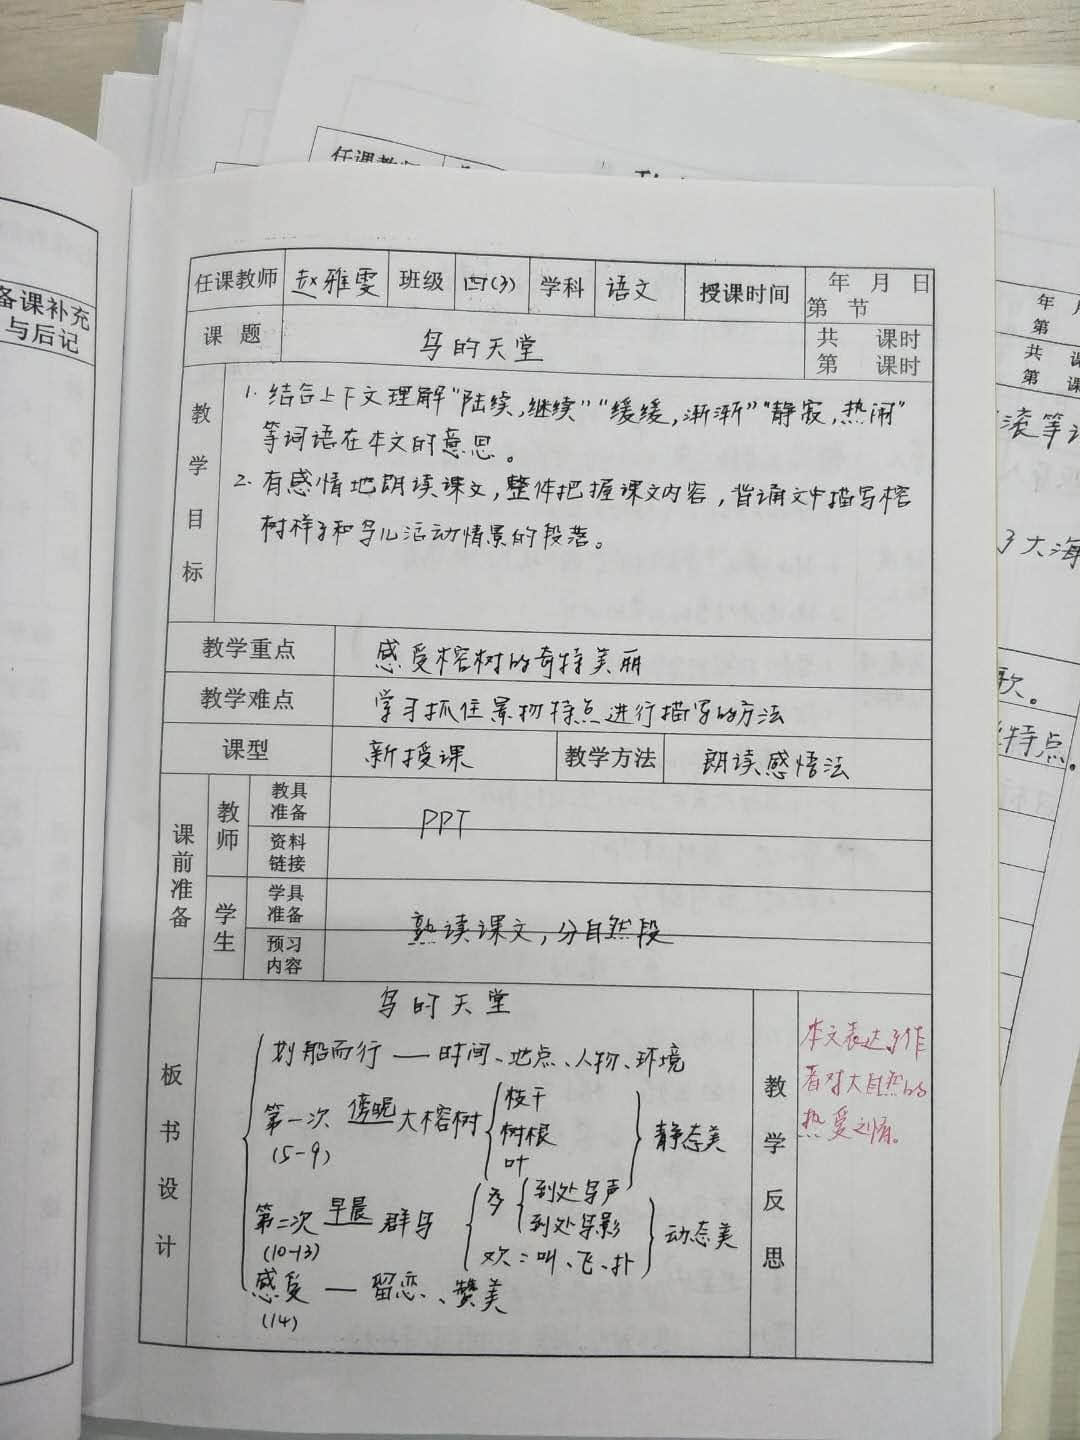 任课教师
备课补充
与后记
任课教师 赵雅雯 班级 四(3) 学科 语文 授课时间 年 月 日
第 节
课 题 鸟的天堂 共 课时
第 课时
教学目标
1. 结合上下文理解"陆续,继续""缓缓,渐渐""静寂,热闹"
等词语在本文的意思。
2. 有感情地朗读课文,整体把握课文内容,背诵文中描写榕
树样子和鸟儿活动情景的段落。
教学重点 感受榕树的奇特美丽
教学难点 学习抓住景物特点进行描写的方法
课型 新授课 教学方法 朗读感悟法
课前准备
教师
教具准备
PPT
资料链接
学生
学具准备
熟读课文,分自然段
预习内容
板书设计
鸟的天堂
划船而行 — 时间、地点、人物、环境
第一次 傍晚 大榕树 枝干 树根 叶 静态美
(5-9)
第二次 早晨 群鸟 多 到处鸟声 到处鸟影 动态美
(10-13) 欢:叫、飞、扑
感受 — 留恋、赞美
(14)
教学反思
本文表达了作
者对大自然的
热爱之情。
年 月
第
共 课
第 课
滚等
了大海
歌。
特点。